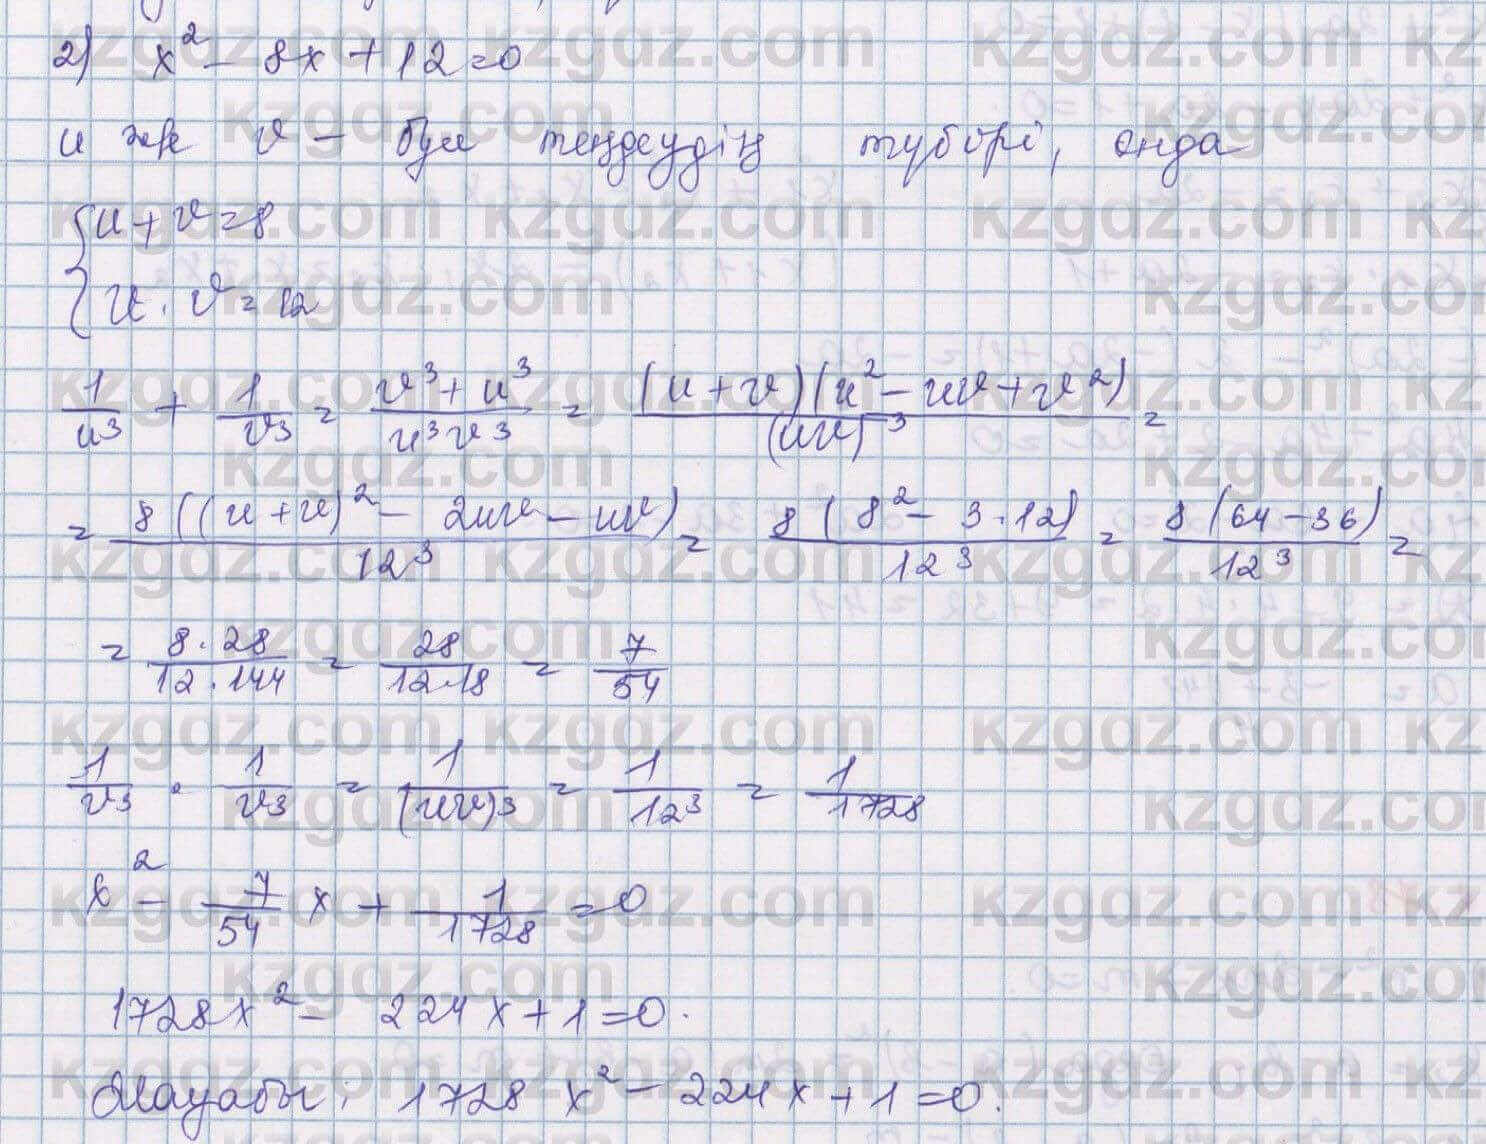 2) x² - 8x + 12 = 0
u және v - бұл теңдеудің түбірі, онда
{ u + v = 8
{ u · v = 12
1/u³ + 1/v³ = (v³ + u³)/(u³v³) = ((u + v)(u² - uv + v²))/(uv)³ =
= (8((u + v)² - 2uv - uv))/12³ = (8(8² - 3·12))/12³ = (8(64 - 36))/12³ =
= (8·28)/(12·144) = 28/(12·18) = 7/54
1/v³ · 1/v³ = 1/(uv)³ = 1/12³ = 1/1728
x² - 7/54 x + 1/1728 = 0
1728x² - 224x + 1 = 0.
Жауабы: 1728x² - 224x + 1 = 0.
kzgdz.com